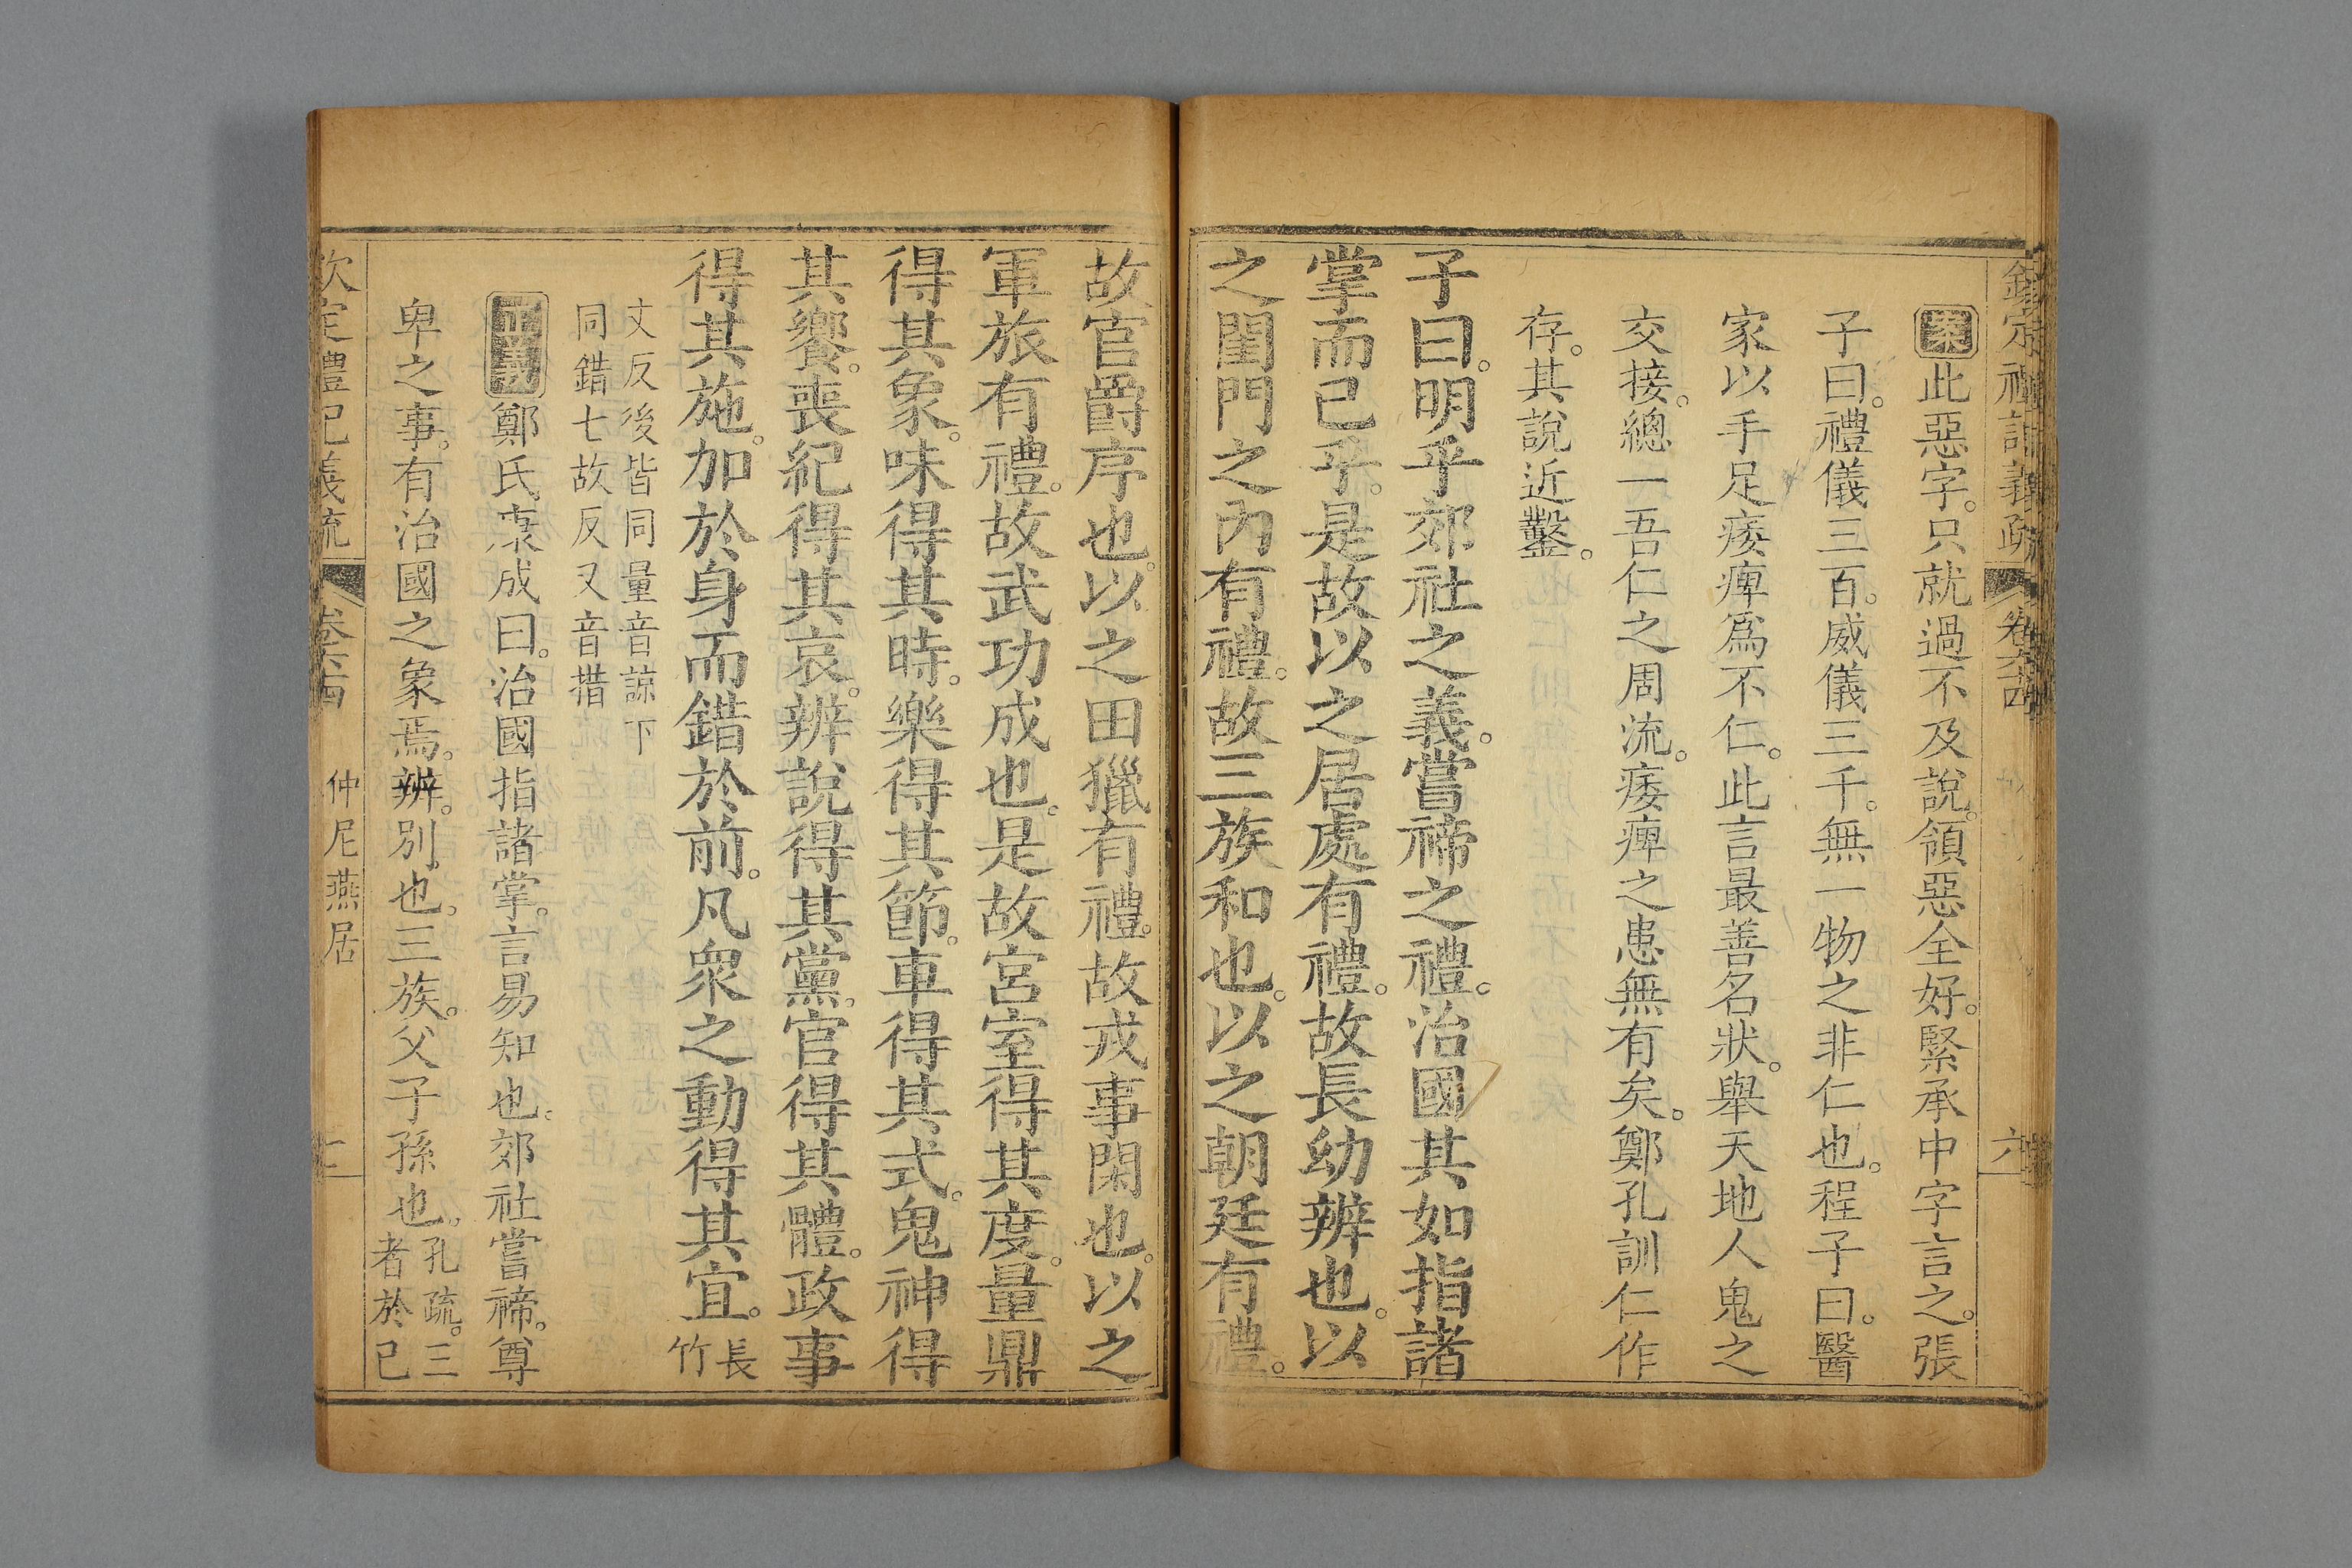 欽定禮記義疏 卷六十四 六
案此惡字。只就過不及說。領惡全好。緊承中字言之。張
子曰。禮儀三百。威儀三千。無一物之非仁也。程子曰。醫
家以手足痿痺爲不仁。此言最善名狀。舉天地人鬼之
交接。總一吾仁之周流。痿痺之患無有矣。鄭孔訓仁作
存。其說近鑿。
子曰。明乎郊社之義。嘗禘之禮。治國其如指諸
掌而已乎。是故以之居處有禮。故長幼辨也。以
之閨門之內有禮。故三族和也。以之朝廷有禮。
故官爵序也。以之田獵有禮。故戎事閑也。以之
軍旅有禮。故武功成也。是故宮室得其度。量鼎
得其象。味得其時。樂得其節。車得其式。鬼神得
其饗。喪紀得其哀。辨說得其黨。官得其體。政事
得其施。加於身而錯於前。凡衆之動得其宜。長
竹
丈反後皆同量音諒下
同錯七故反又音措
正義鄭氏康成曰。治國指諸掌。言易知也。郊社嘗禘。尊
卑之事。有治國之象焉。辨。別也。三族。父子孫也。孔疏。三
者於己
欽定禮記義疏 卷六十四 仲尼燕居